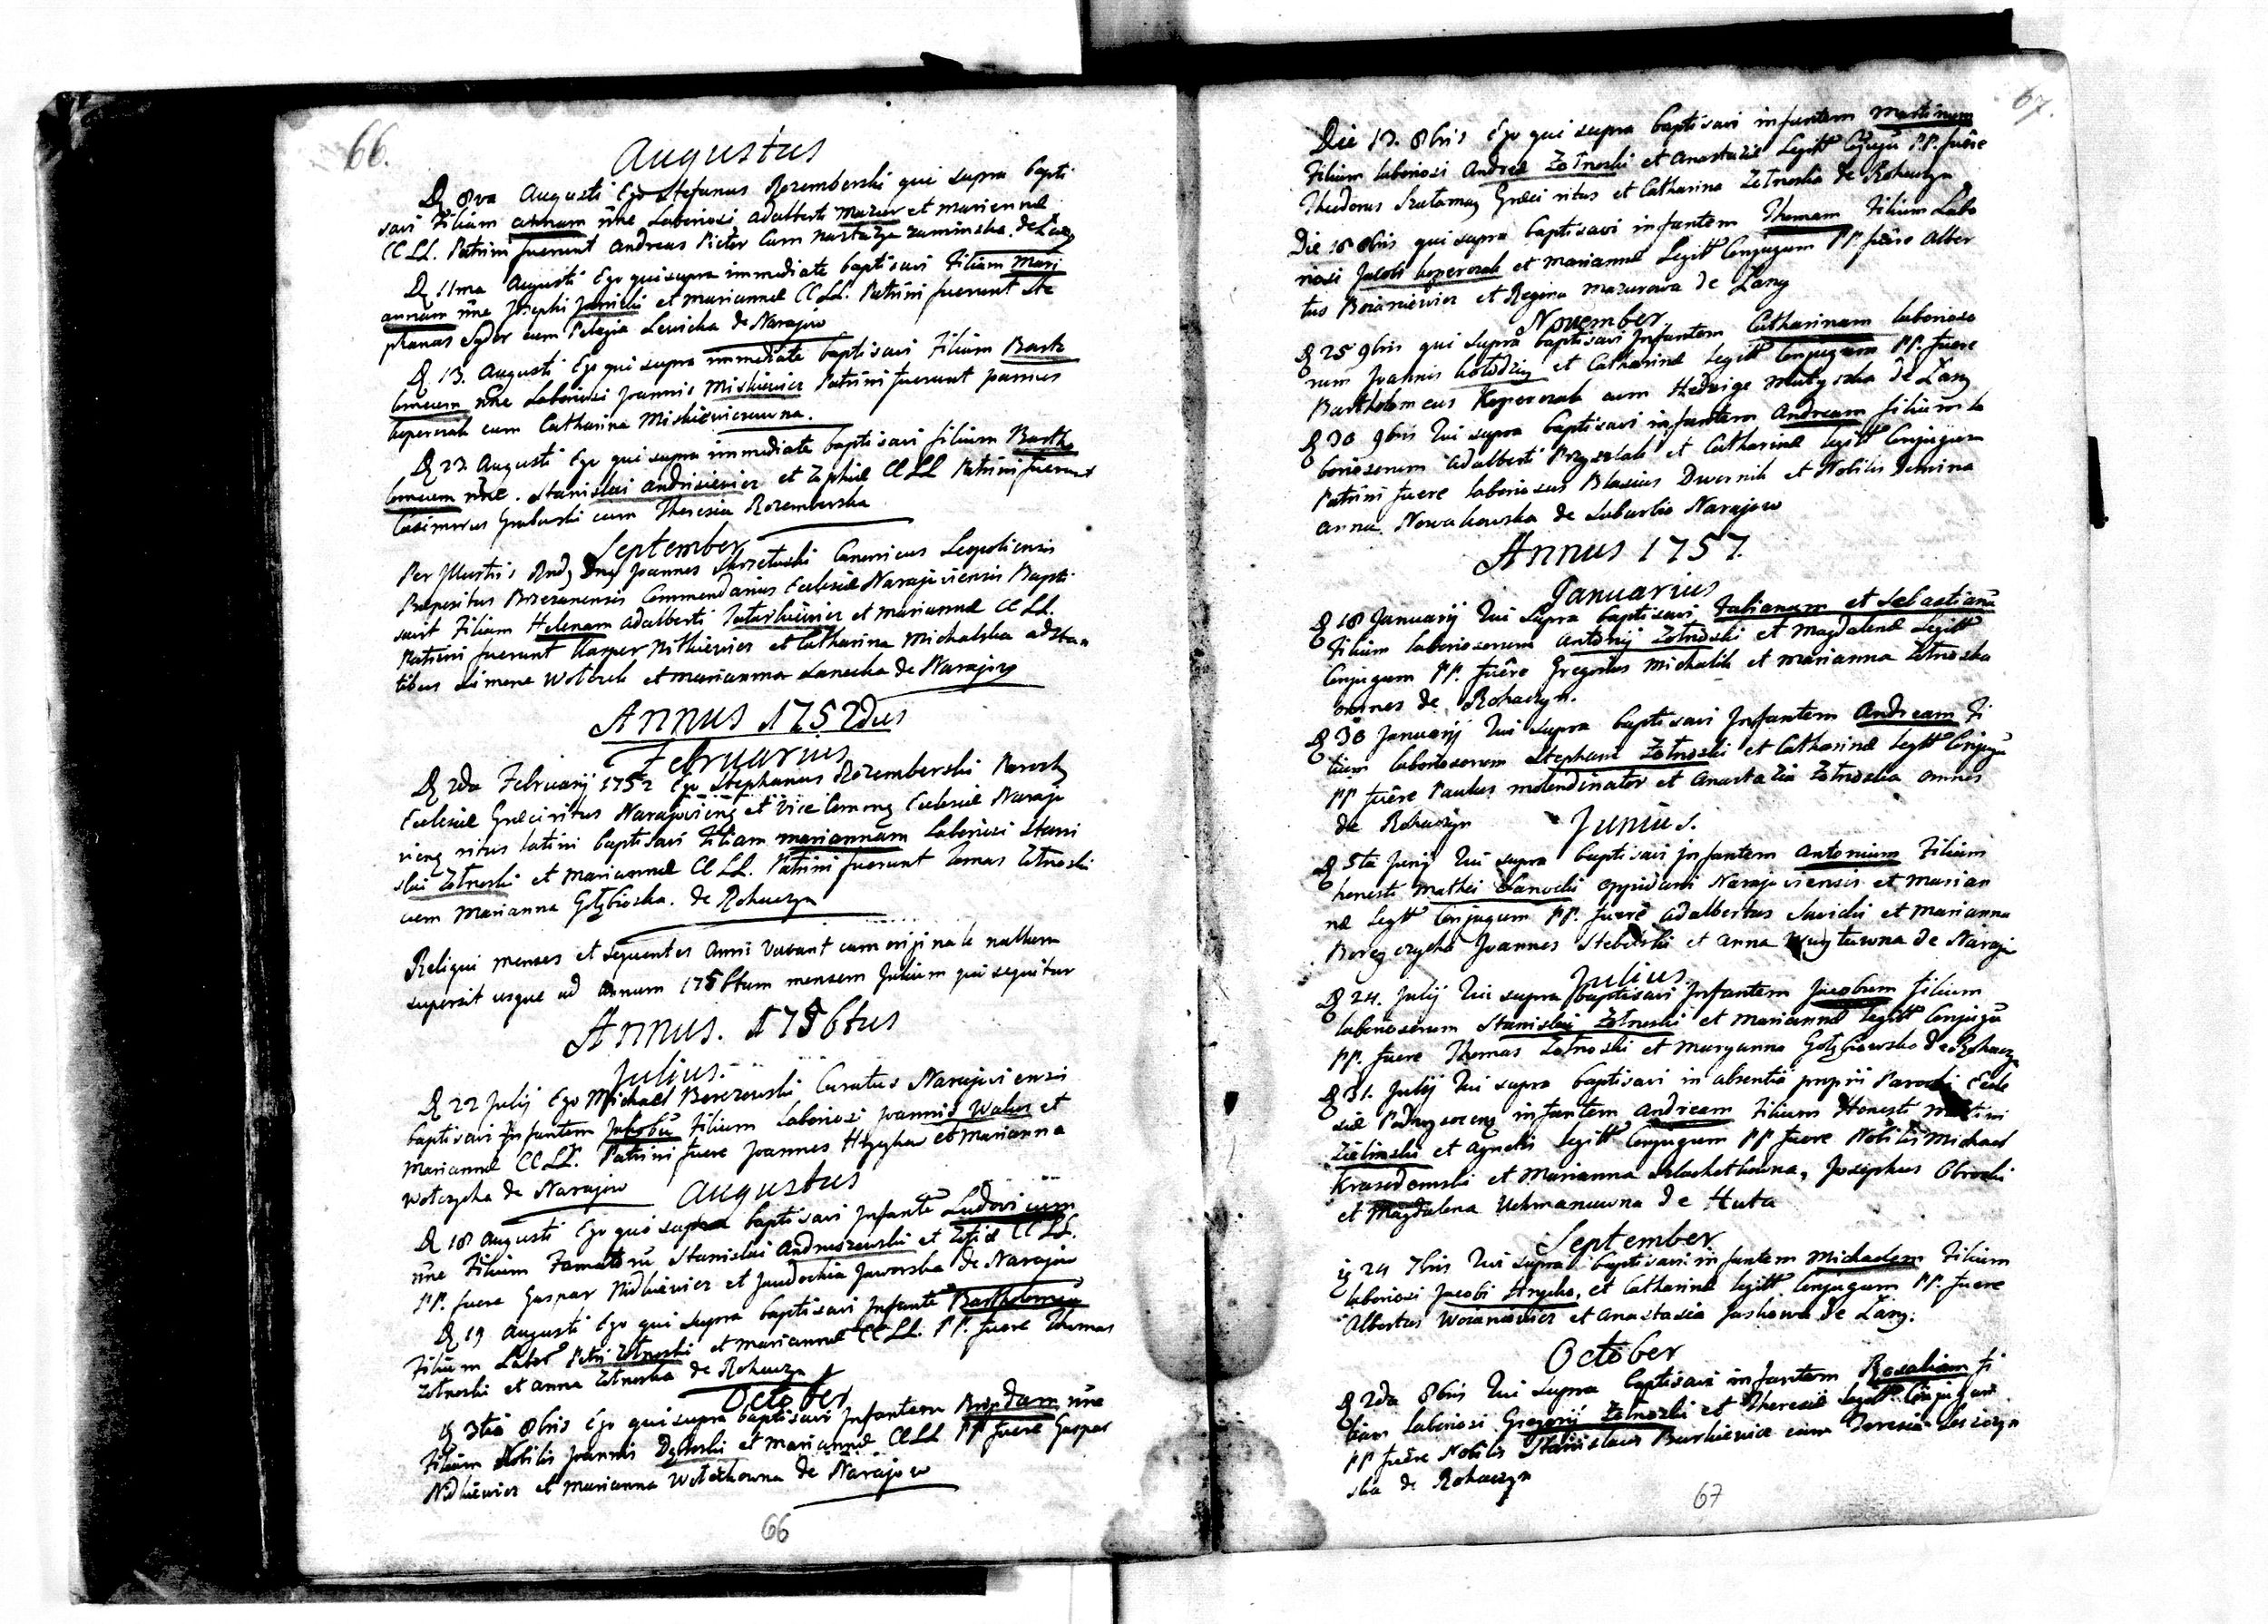 66.
Augustus
D 8va Augusti Ego Stefanus Rozemberski qui supra bapti
savi Filiam annam nne Laboriosi adalberti mazur et mariannæ
CCLL. Patrini fuerunt Andreas Pictor Cum nastazya
D 11ma Augusti Ego qui supra immediate baptisavi Filiam Mari
annam nne Josephi Janicki et mariannæ CCLL. Patrini fuerunt Ste
phanus Sydor cum Pelagia Lewicka de Narajow
D 13. Augusti Ego qui supra immediate baptisavi Filium Barto
lomeum nne Laboriosi Joannis Miskiewicz Patrini fuerunt Joannes
koperczak cum Catharina Miskiewiczowna.
D 23. Augusti Ego qui supra immediate baptisavi filium Bartho
lomeum nne. Stanislai andrisiewicz et Zophiæ CCLL Patrini fuerunt
Casimirus Grabuski cum Theresia Rozemberska
September
Per Illustris Rnd Dng Joannes Skrzetuski Canonicus Leopoliensis
Præpositus Brzezanensis Commendarius Ecclesiæ Narajoviensis Bapti
savit Filiam Helenam adalberti Tatarkiewicz et mariannæ CCLL.
Patrini fuerunt Kasper Nitkiewicz et Catharina Michalska adstan
tibus Simone Wolczek et marianna Sanecka de Narajow
Annus 1752dus
Februarius
D 2da Februarij 1752 Ego Stephanus Rozemberski Paroch
Ecclesiæ Græci ritus Narajoviens et Vice Comong Ecclesiæ Narajo
viens ritus latini baptisavi Filiam mariannam laboriosi Stani
slai Zotnoski et mariannæ CCLL. Patrini fuerunt Tomas Zotnoski
cum Marianna Gołębioska. de Rohaczyn
Reliqui menses et sequentes anni vacant cum originale nullum
supersit usque ad annum 1756tum mensem Julium qui sequitur
Annus. 1756tus
Julius.
D 22 Julij Ego Michael Berezowski Curatus Narajoviensis
baptisavi Infantem Jakobu Filium laboriosi Joannis Walus et
Mariannæ CCLL. Patrini fuere Joannes Hrycykow et Marianna
Wołczycka de Narajow
Augustus
D 18 Augusti Ego qui supra baptisavi Infante Ludovicum
nne Filium Famatoru Stanislai Andruszewski et Zofiæ CCLL.
PP. fuere Gaspar Nidkiewicz et Jaudochia Jaworska de Narajow
D 19 Augusti Ego qui supra baptisavi Infante Bartholomeu
Filium Labor Petri Zotnoski et mariannæ CCLL. PP. fuere Thomas
Zotnoski et anna Zotnoska de Rohaczyn
October
D 3tia 8bris Ego qui supra baptisavi Infantem Brigidam nne
Filiam Nobilis Joannis et mariannæ CCLL PP fuere Gaspar
Nidkiewicz et marianna Wołczkowna de Narajow
66
67.
Die 13. 8bris Ego qui supra baptisavi infantem Martinum
Filium laboriosi Andreæ Zotnoski et anastaziæ Legitt Cojugu PP. fuere
Theodorus Szatamay Græci ritus et Catharina Zotnoska de Rohaczyn
Die 18 8bris qui supra baptisavi infantem Thomam Filium Labo
riosi Jacobi koperczak et mariannæ Legitt Conjugum PP. fuere Alber
tus Woianiewicz et Regina mazurowa de Lany
November
D 25 9bris qui supra baptisavi Infantem Catharinam laborioso
rum Joannis kołodziey et Catharinæ Legitt Conjugum PP. fuere
Bartholomeus Koperczak cum Hedwige matyszka de Lany
D 30 9bris Qui supra baptisavi infantem Andream filium la
boriosorum adalberti Przyszlak et Catharinæ legitt Conjugum
Patrini fuere laboriosus Blasius Dwornik et Nobilis Domina
anna Nowakowska de Suburbio Narajow
Annus 1757.
Januarius
D 18 Januarij Qui Supra baptisavi Fabianum et Sebastianu
Filium laboriosorum Antonij Zotnoski et magdalenæ Legitt
Conjugum PP. fuere Gregorius Michalik et marianna Zotnoska
omnes de Rohaczyn.
D 30 Januarij Qui supra baptisavi Infantem Andream Fi
lium laboriosorum Stephani Zotnoski et Catharinæ legitt Conjugu
PP fuere Paulus molendinator et Anastazia Zotnoska omnes
de Rohaczyn
Junius.
D 5ta Junij Qui supra baptisavi Infantem Antonium Filium
honesti Mathei Sanocki oppidani Narajoviensis et marian
næ legitt Conjugum PP. fuere Adalbertus Sawicki et Marianna
Joannes Stebelski et Anna de Narajo
Julius
D 24. Julij Qui supra baptisavi Infantem Jacobum Filium
laboriosorum Stanislai Zotnoski et Mariannæ legitt Conjugu
PP. fuere Thomas Zotnoski et maryanna Gołębiowska de Rohaczy
D 31. Julij Qui supra baptisavi in absentia proprii Parochi Eccle
siæ infantem Andream Filium Honesti Martini
Zielinski et Agnetis legitt Conjugum PP fuere Nobilis Michael
Krasodomski et Marianna Szlachetkowna, Josephus Obrocki
et Magdalena Uchmanowna de Huta
September
D 24 7bris Qui supra baptisavi infantem Michaelem Filium
laboriosi Jacobi Hrycko, et Catharinæ legitt Conjugum PP. fuere
Albertus Woianiewicz et Anastasia Jaskowa de Lany.
October
D 2da 8bris Qui supra baptisavi infantem Rosaliam Fi
liam laboriosi Gregorij Zotnoski et Theresiæ legitt Conjugum
PP fuere Nobilis Stanislaus Burkiewicz cum Teresia Lesiczyn
ska de Rohaczyn
67